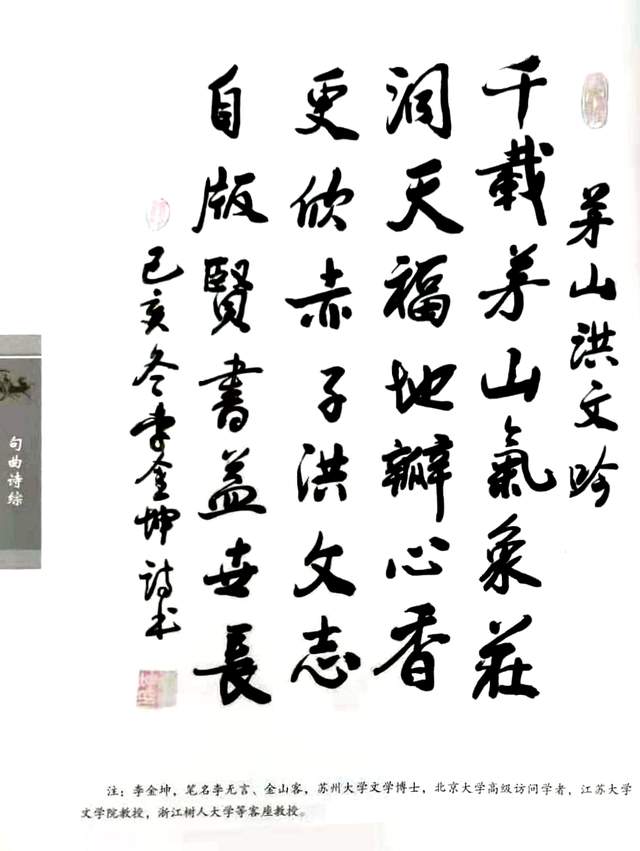 茅山洪文吟
千載茅山氣象莊
洞天福地瓣心香
更欣赤子洪文志
自版賢書益世長
己亥冬李金坤詩书
句曲诗综
注：李金坤，笔名李无言、金山客，苏州大学文学博士，北京大学高级访问学者，江苏大学
文学院教授，浙江树人大学等客座教授。